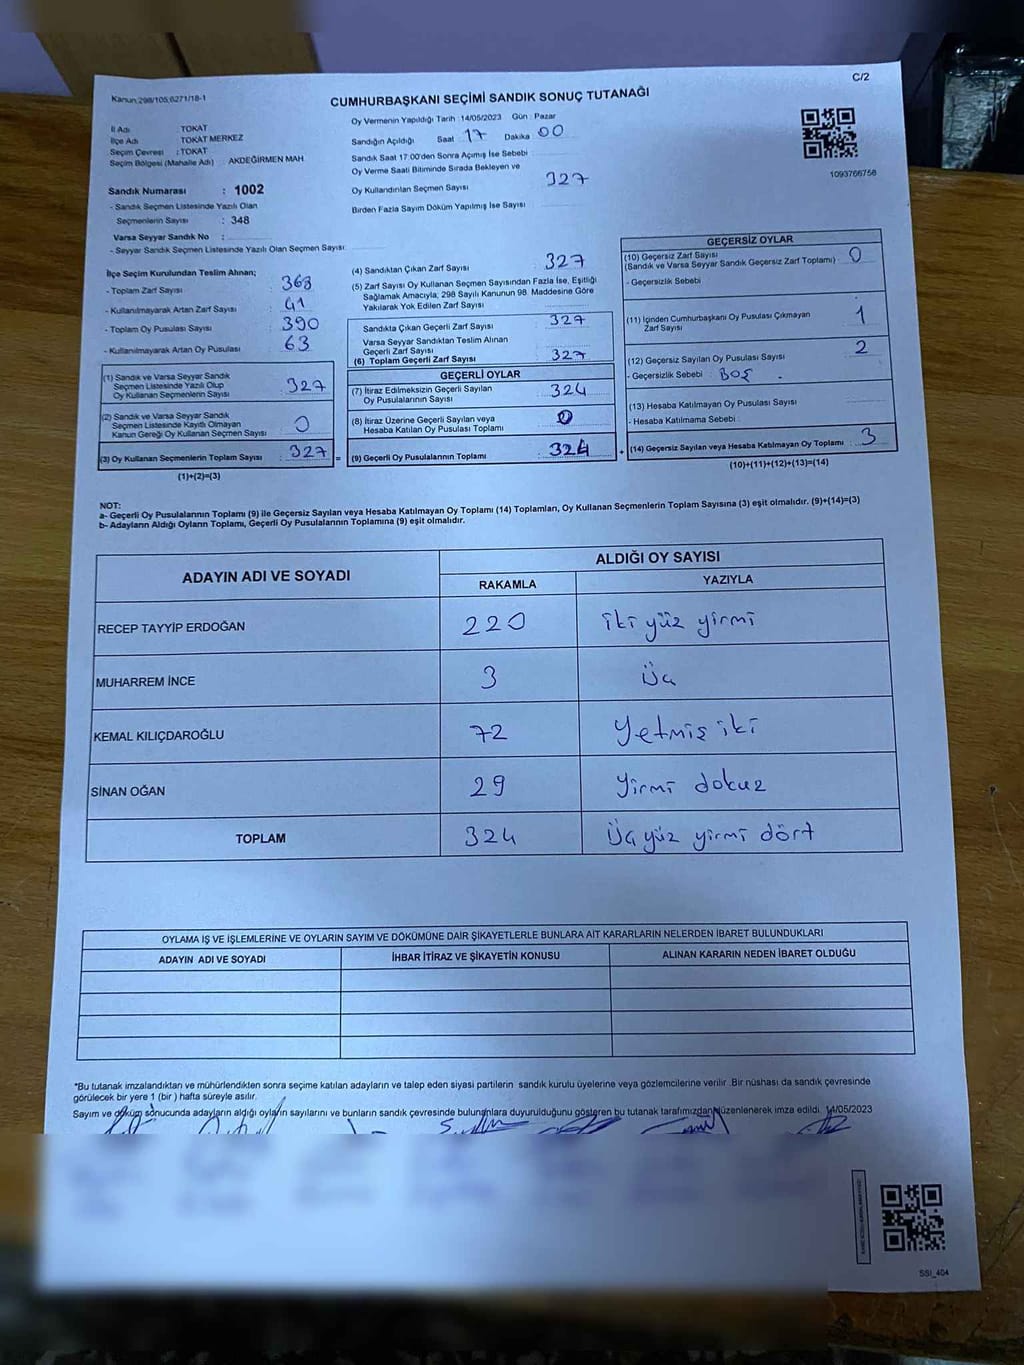 C/2
Kanun;298/105;6271/18-1
CUMHURBAŞKANI SEÇİMİ SANDIK SONUÇ TUTANAĞI
İl Adı : TOKAT
İlçe Adı : TOKAT MERKEZ
Seçim Çevresi : TOKAT
Seçim Bölgesi (Mahalle Adı) : AKDEĞİRMEN MAH.
Sandık Numarası : 1002
- Sandık Seçmen Listesinde Yazılı Olan
Seçmenlerin Sayısı : 348
Varsa Seyyar Sandık No :
- Seyyar Sandık Seçmen Listesinde Yazılı Olan Seçmen Sayısı:
Oy Vermenin Yapıldığı Tarih : 14/05/2023 Gün : Pazar
Sandığın Açıldığı Saat 17 Dakika 00
Sandık Saat 17.00'den Sonra Açımış İse Sebebi
Oy Verme Saati Bitiminde Sırada Bekleyen ve
Oy Kullandırılan Seçmen Sayısı 327
Birden Fazla Sayım Döküm Yapılmış İse Sayısı
1093766758
İlçe Seçim Kurulundan Teslim Alınan;
- Toplam Zarf Sayısı : 368
- Kullanılmayarak Artan Zarf Sayısı : 41
- Toplam Oy Pusulası Sayısı : 390
- Kullanılmayarak Artan Oy Pusulası : 63
(1) Sandık ve Varsa Seyyar Sandık
Seçmen Listesinde Yazılı Olup
Oy Kullanan Seçmenlerin Sayısı : 327
(2) Sandık ve Varsa Seyyar Sandık
Seçmen Listesinde Kayıtlı Olmayan
Kanun Gereği Oy Kullanan Seçmen Sayısı : 0
(3) Oy Kullanan Seçmenlerin Toplam Sayısı : 327 =
(1)+(2)=(3)
(4) Sandıktan Çıkan Zarf Sayısı 327
(5) Zarf Sayısı Oy Kullanan Seçmen Sayısından Fazla İse, Eşitliği
Sağlamak Amacıyla, 298 Sayılı Kanunun 98. Maddesine Göre
Yakılarak Yok Edilen Zarf Sayısı
Sandıkta Çıkan Geçerli Zarf Sayısı : 327
Varsa Seyyar Sandıktan Teslim Alınan
Geçerli Zarf Sayısı
(6) Toplam Geçerli Zarf Sayısı : 327
GEÇERLİ OYLAR
(7) İtiraz Edilmeksizin Geçerli Sayılan
Oy Pusulalarının Sayısı : 324
(8) İtiraz Üzerine Geçerli Sayılan veya
Hesaba Katılan Oy Pusulası Toplamı : 0
(9) Geçerli Oy Pusulalarının Toplamı : 324 +
GEÇERSİZ OYLAR
(10) Geçersiz Zarf Sayısı
(Sandık ve Varsa Seyyar Sandık Geçersiz Zarf Toplamı) : 0
- Geçersizlik Sebebi :
(11) İçinden Cumhurbaşkanı Oy Pusulası Çıkmayan
Zarf Sayısı : 1
(12) Geçersiz Sayılan Oy Pusulası Sayısı : 2
- Geçersizlik Sebebi : BOŞ
(13) Hesaba Katılmayan Oy Pusulası Sayısı
- Hesaba Katılmama Sebebi :
(14) Geçersiz Sayılan veya Hesaba Katılmayan Oy Toplamı : 3
(10)+(11)+(12)+(13)=(14)
NOT:
a- Geçerli Oy Pusulalarının Toplamı (9) ile Geçersiz Sayılan veya Hesaba Katılmayan Oy Toplamı (14) Toplamları, Oy Kullanan Seçmenlerin Toplam Sayısına (3) eşit olmalıdır. (9)+(14)=(3)
b- Adayların Aldığı Oyların Toplamı, Geçerli Oy Pusulalarının Toplamına (9) eşit olmalıdır.
ADAYIN ADI VE SOYADI ALDIĞI OY SAYISI
RAKAMLA YAZIYLA
RECEP TAYYİP ERDOĞAN 220 iki yüz yirmi
MUHARREM İNCE 3 üç
KEMAL KILIÇDAROĞLU 72 Yetmiş iki
SİNAN OĞAN 29 Yirmi dokuz
TOPLAM 324 Üç yüz yirmi dört
OYLAMA İŞ VE İŞLEMLERİNE VE OYLARIN SAYIM VE DÖKÜMÜNE DAİR ŞİKAYETLERLE BUNLARA AİT KARARLARIN NELERDEN İBARET BULUNDUKLARI
ADAYIN ADI VE SOYADI İHBAR İTİRAZ VE ŞİKAYETİN KONUSU ALINAN KARARIN NEDEN İBARET OLDUĞU
*Bu tutanak imzalandıktan ve mühürlendikten sonra seçime katılan adayların ve talep eden siyasi partilerin sandık kurulu üyelerine veya gözlemcilerine verilir. Bir nüshası da sandık çevresinde
görülecek bir yere 1 (bir) hafta süreyle asılır.
Sayım ve döküm sonucunda adayların aldığı oyların sayılarını ve bunların sandık çevresinde bulunanlara duyurulduğunu gösteren bu tutanak tarafımızdan düzenlenerek imza edildi. 14/05/2023
SSI_404